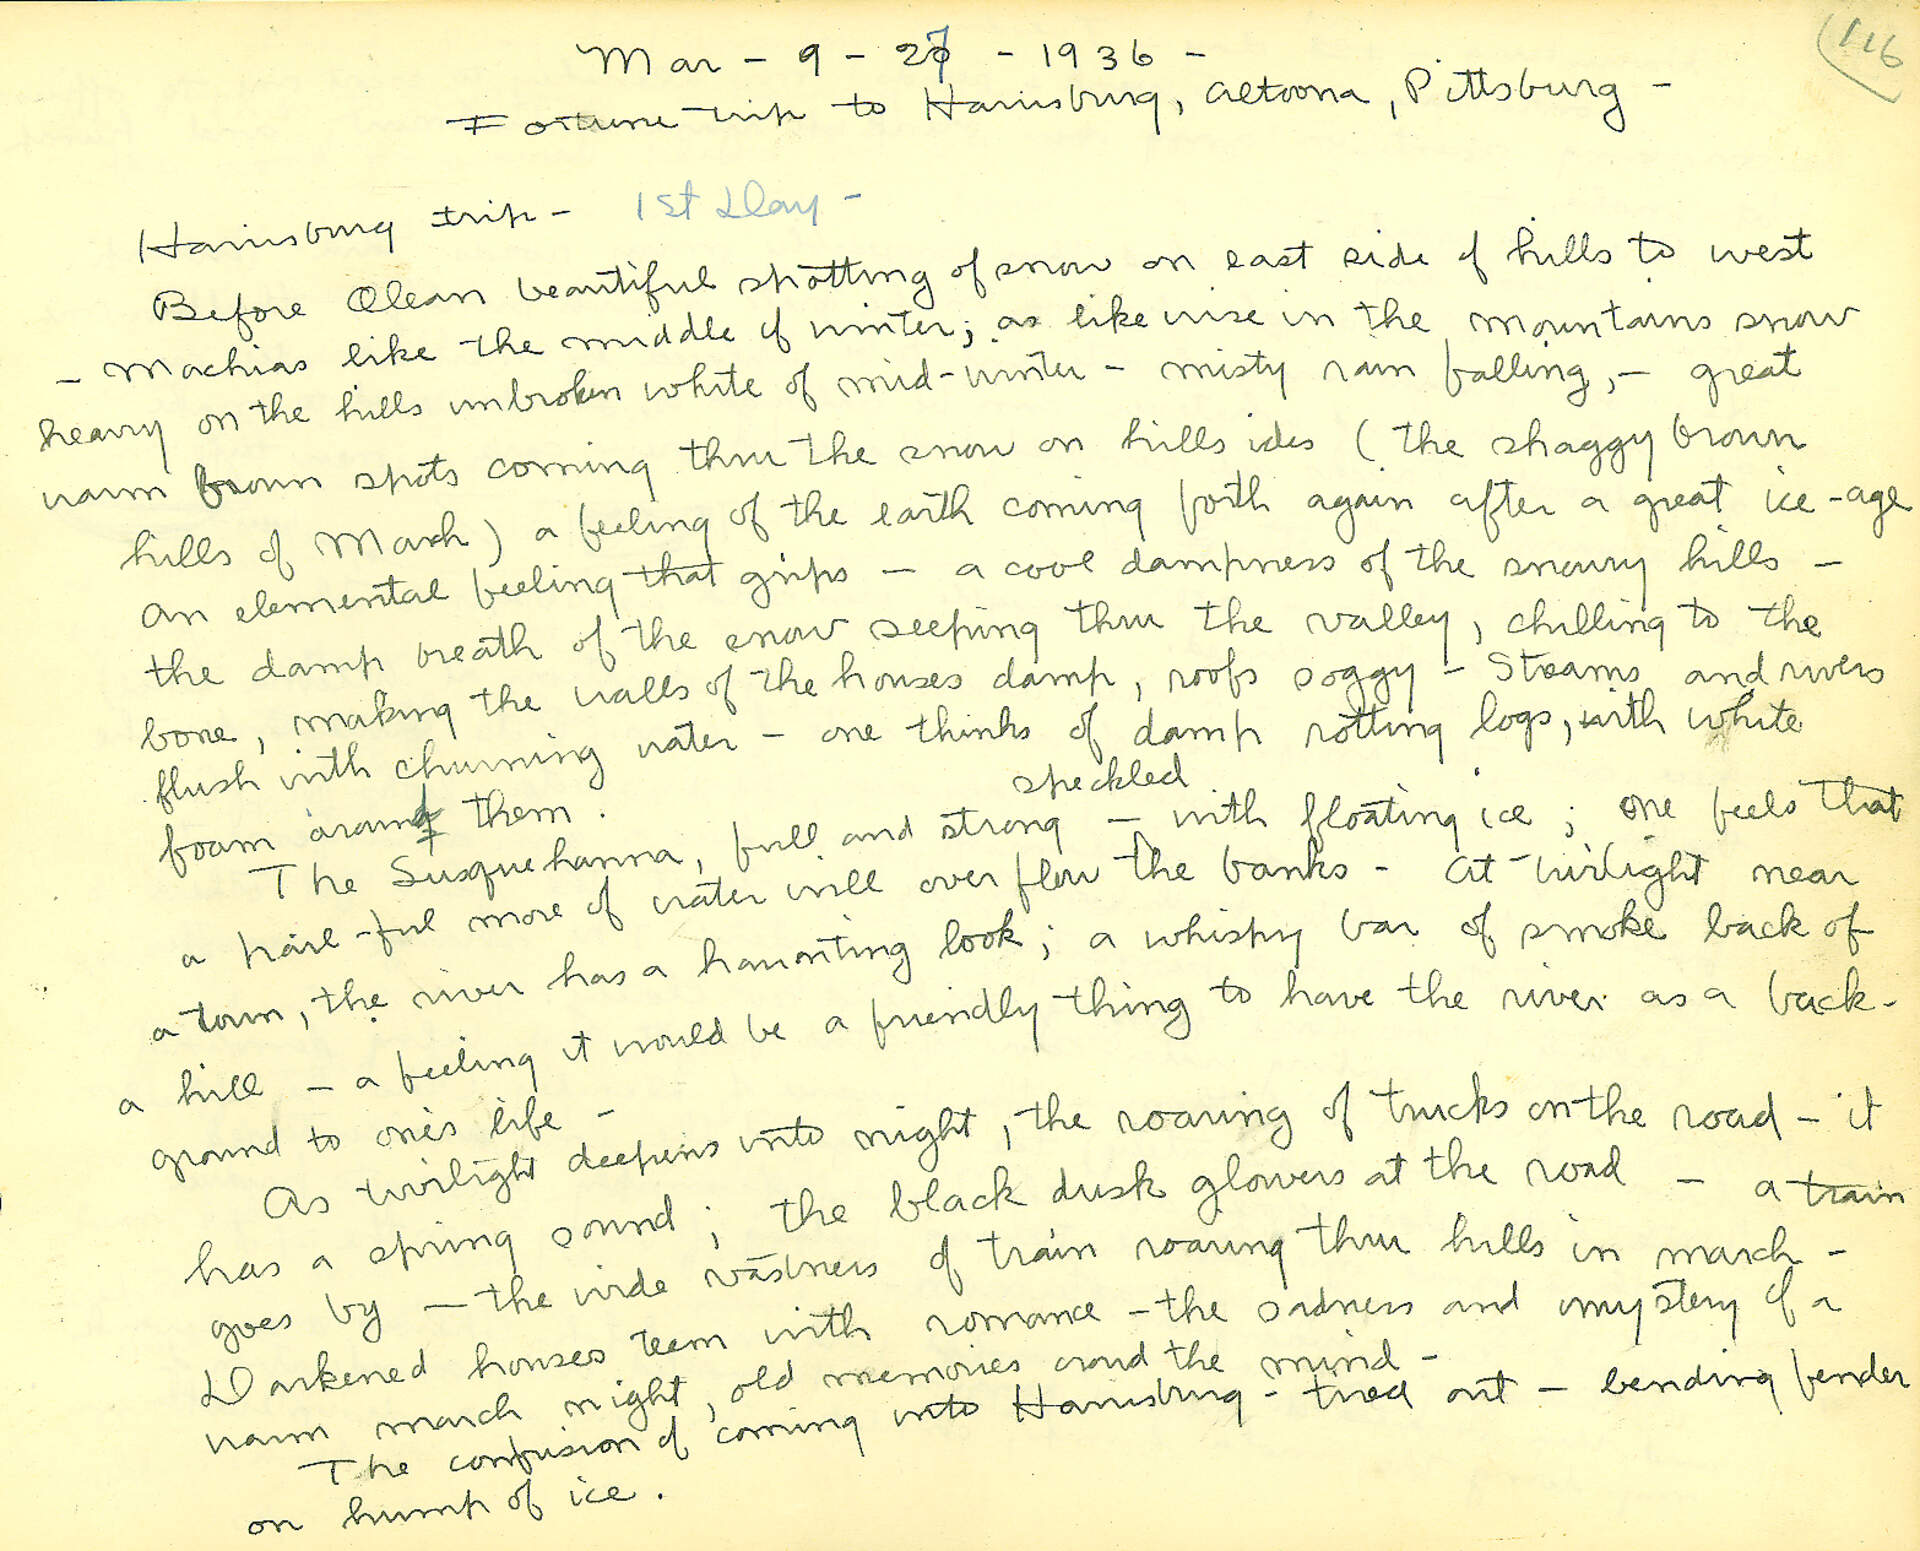 116
Mar - 9 - 27 - 1936 -
Fortune trip to Harrisburg, Altoona, Pittsburg -
Harrisburg trip - 1st Day -
Before Olean beautiful spotting of snow on east side of hills to west
- Machias like the middle of winter; as likewise in the mountains snow
heavy on the hills unbroken white of mid-winter - misty rain falling, - great
warm brown spots coming thru the snow on hillsides (the shaggy brown
hills of March) a feeling of the earth coming forth again after a great ice-age
An elemental feeling that grips - a cool dampness of the snowy hills -
the damp breath of the snow seeping thru the valley, chilling to the
bone, making the walls of the houses damp, roofs soggy - Streams and rivers
flush with churning water - one thinks of damp rotting logs, with white
foam around them.
The Susquehanna, full and strong - speckled with floating ice; one feels that
a pail-ful more of water will over flow the banks - At twilight near
a town, the river has a haunting look; a whispy bar of smoke back of
a hill - a feeling it would be a friendly thing to have the river as a back-
ground to one's life -
As twilight deepens into night, the roaring of trucks on the road - it
has a spring sound; the black dusk glowers at the road - a train
goes by - the wide vastness of train roaring thru hills in march -
Darkened houses teem with romance - the sadness and mystery of a
warm march night, old memories crowd the mind -
The confusion of coming into Harrisburg - tired out - bending fender
on hump of ice.